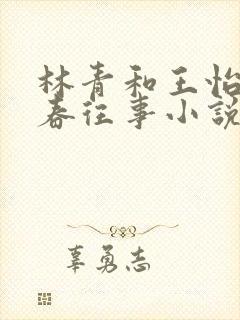 林青和王怡
春往事小说
辜勇志